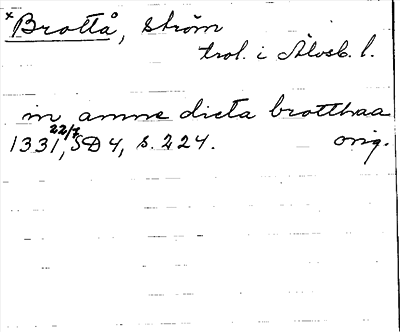 ×Brottå, ström
trol. i Älvsb. l.
in amne dicta brotthaa
1331 22/7, SD 4, s. 224. orig.